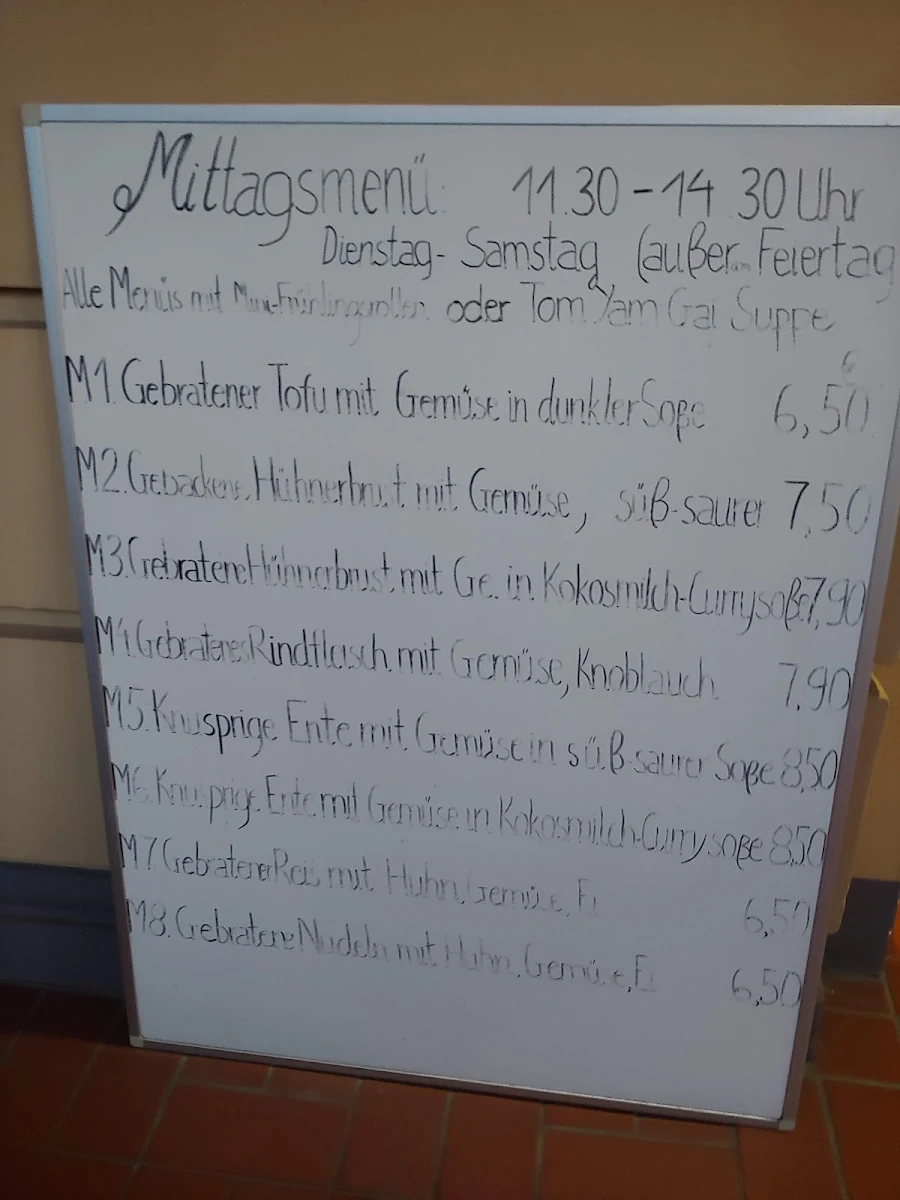 Mittagsmenü 11.30 - 14.30 Uhr
Dienstag - Samstag (außer am Feiertag
Alle Menüs mit Mini-Frühlingsrollen oder Tom Yam Gai Suppe
M1. Gebratener Tofu mit Gemüse in dunkler Soße 6,50
M2. Gebackene Hühnerbrust mit Gemüse, süß-saurer 7,50
M3. Gebratene Hühnerbrust mit Ge. in Kokosmilch-Currysoße 7,90
M4. Gebratenes Rindfleisch mit Gemüse, Knoblauch 7,90
M5. Knusprige Ente mit Gemüse in süß-saurer Soße 8,50
M6. Knusprige Ente mit Gemüse in Kokosmilch-Currysoße 8,50
M7. Gebratener Reis mit Huhn, Gemüse, Ei 6,50
M8. Gebratene Nudeln mit Huhn, Gemüse, Ei 6,50